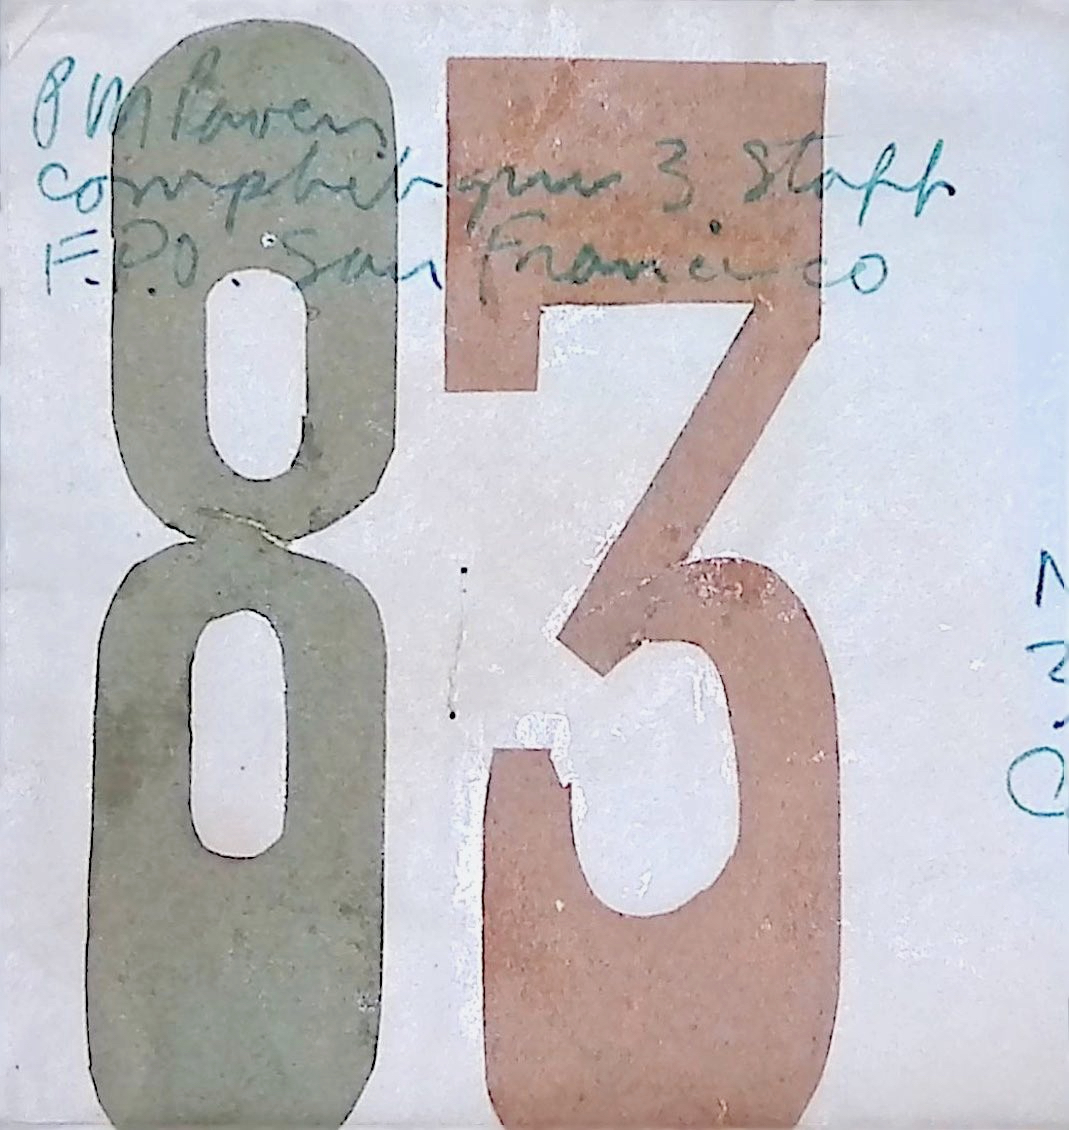 P M Powers
comphibgru 3 Staff
F.P.O. San Francisco
83